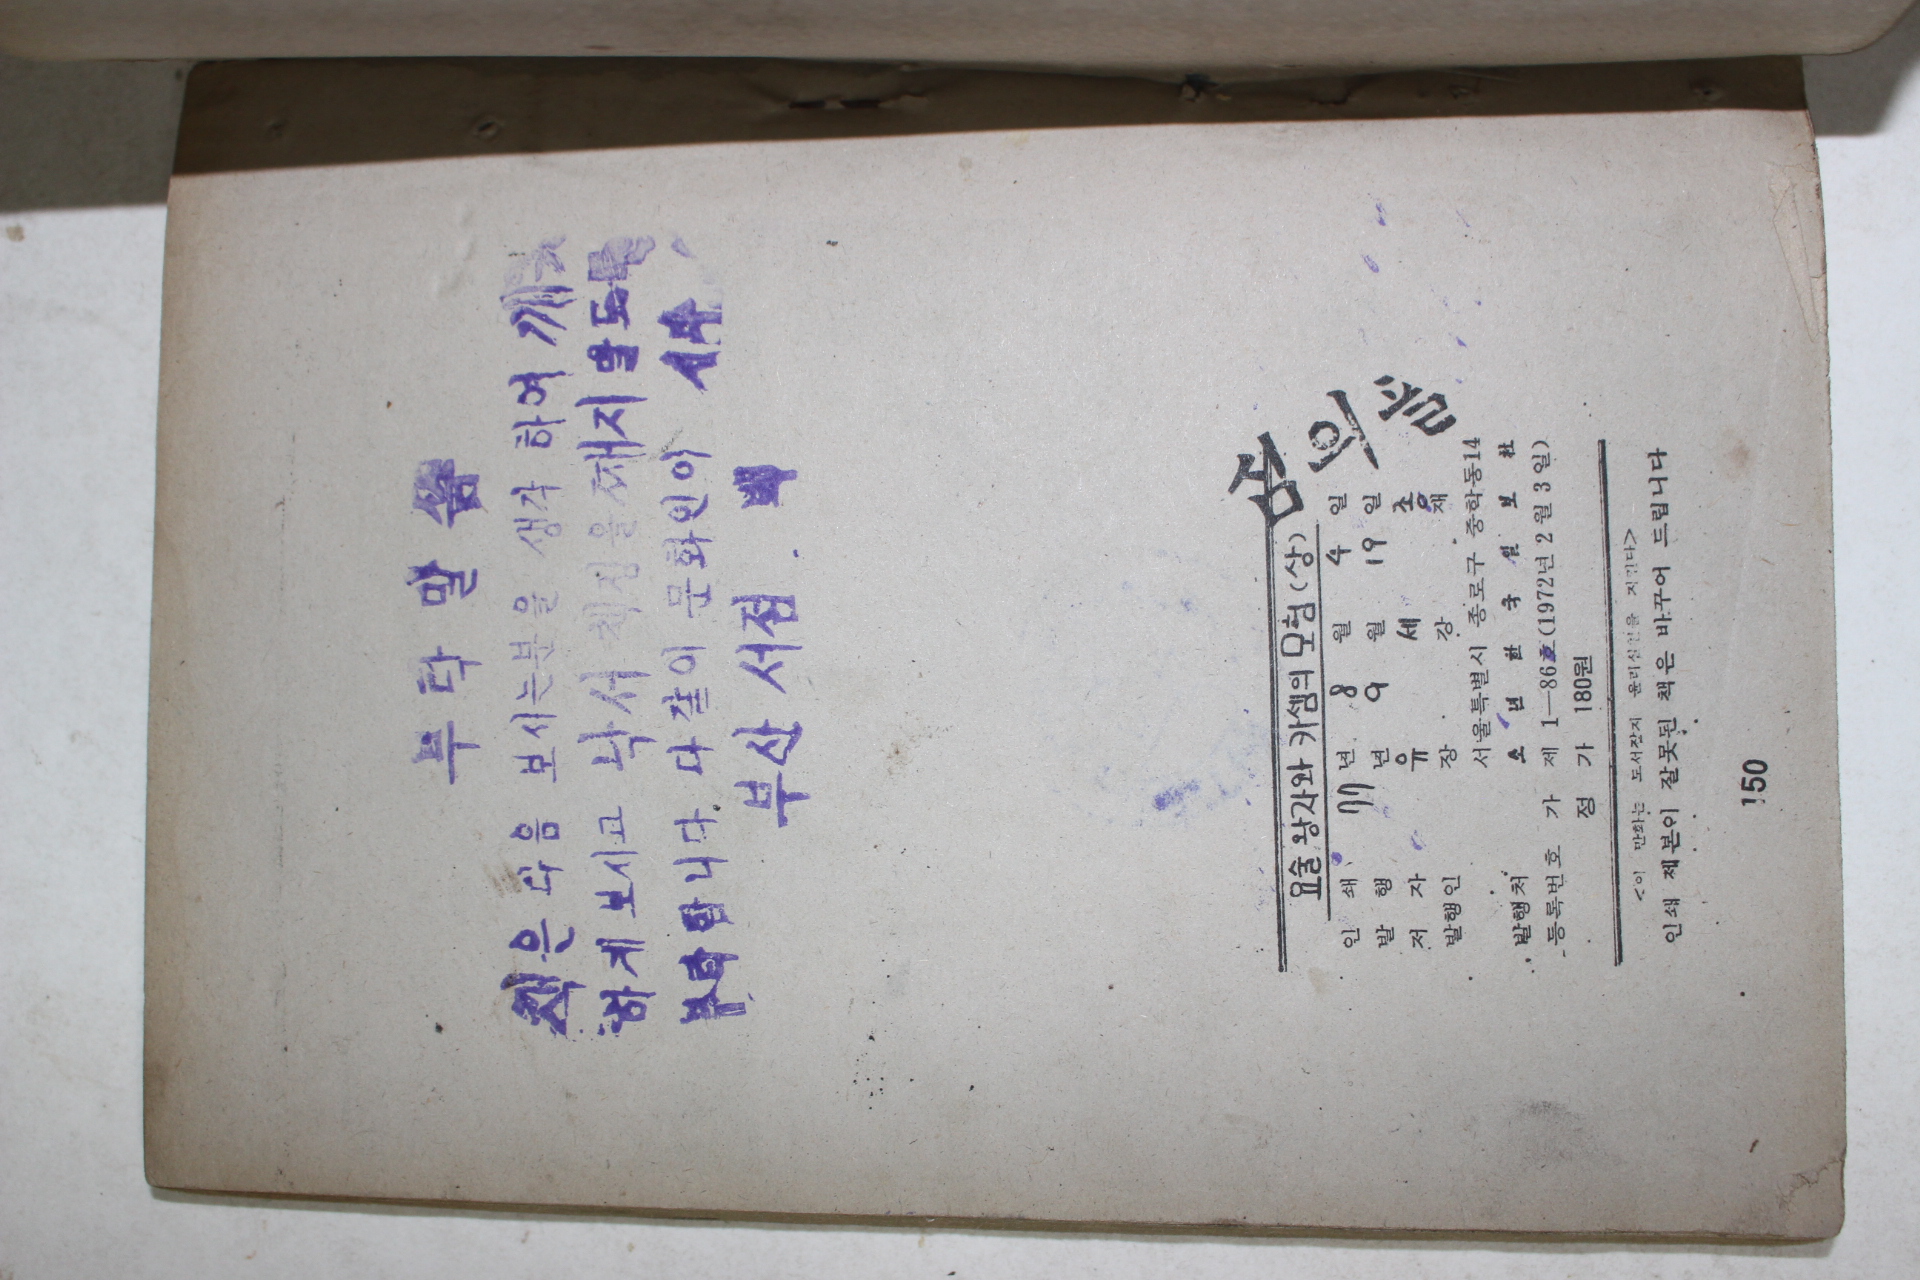 부탁말씀
책은 다음 보시는분을 생각하여
하게 보시고 낙서 책장을 째지 말도
부탁합니다. 다같이 문화인이
부산서점. 백
꿈의 볼
요술 왕자와 카셈의 모험(상)
인 쇄 77 년 8 월 4 일
발 행 77 년 9 월 19 일
저 자 유 세 종
발행인 장 강 재
서울특별시 종로구 중학동14
발행처 소 년 한 국 일 보 社
등록번호 가 제 1—86호(1972년 2월 3일)
정 가 180원
<이 만화는 도서잡지 윤리실천을 지킨다>
인쇄 제본이 잘못된 책은 바꾸어 드립니다
150